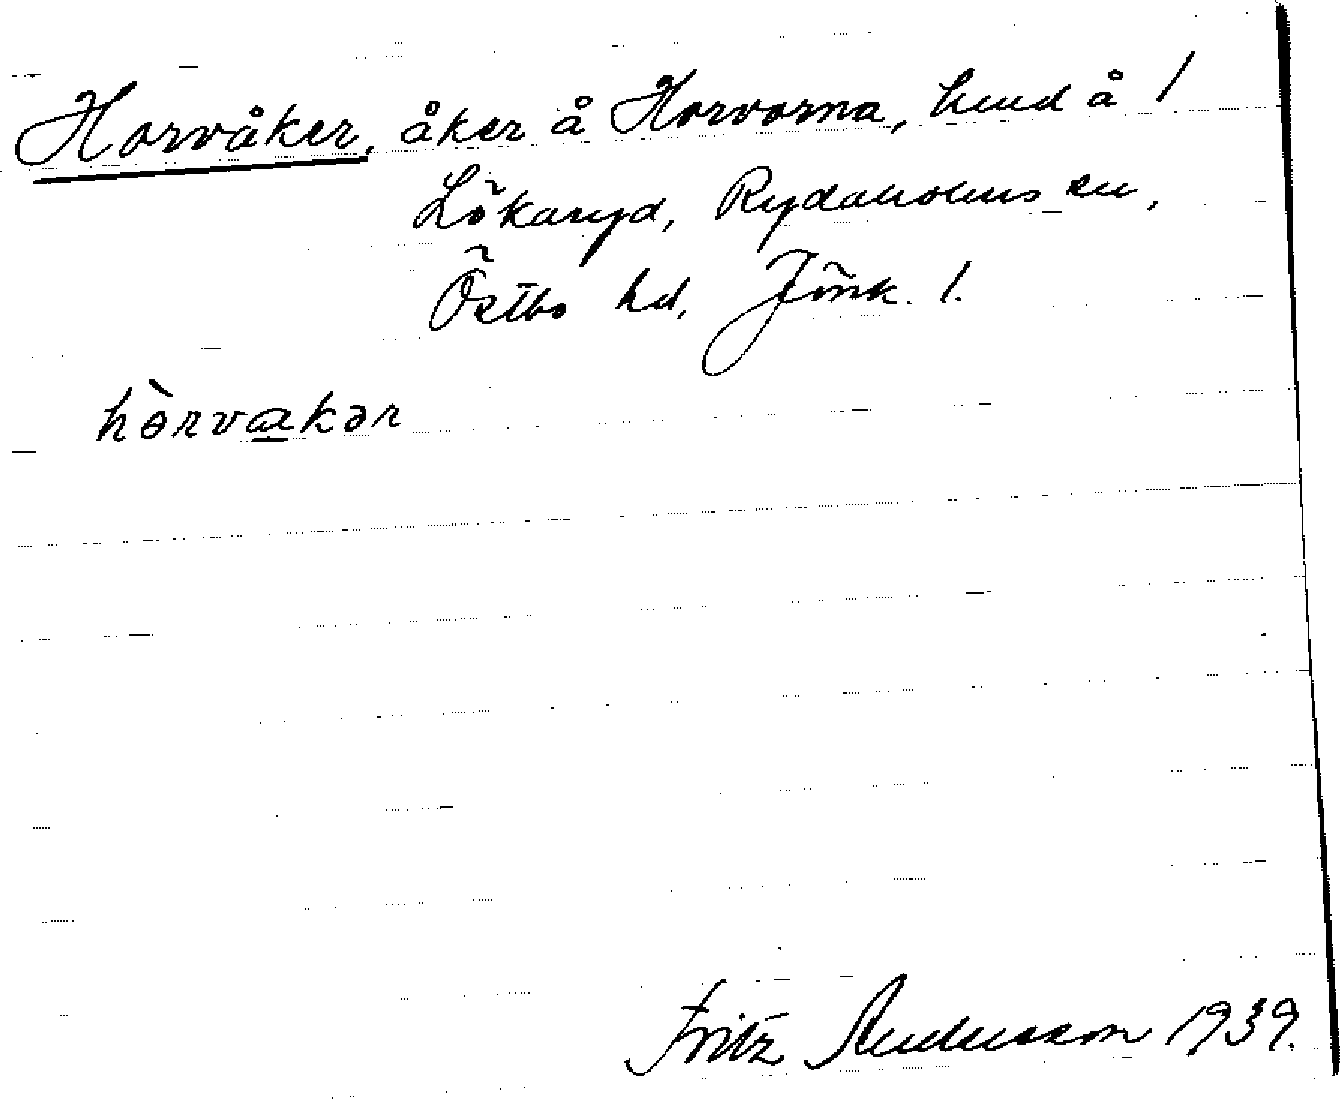 Horvåker, åker å Horvorna, hmd å 1
Lökaryd, Rydaholms sn,
Östbo hd, Jönk. l.
hòrvakər
Fritz Andersson 1939.